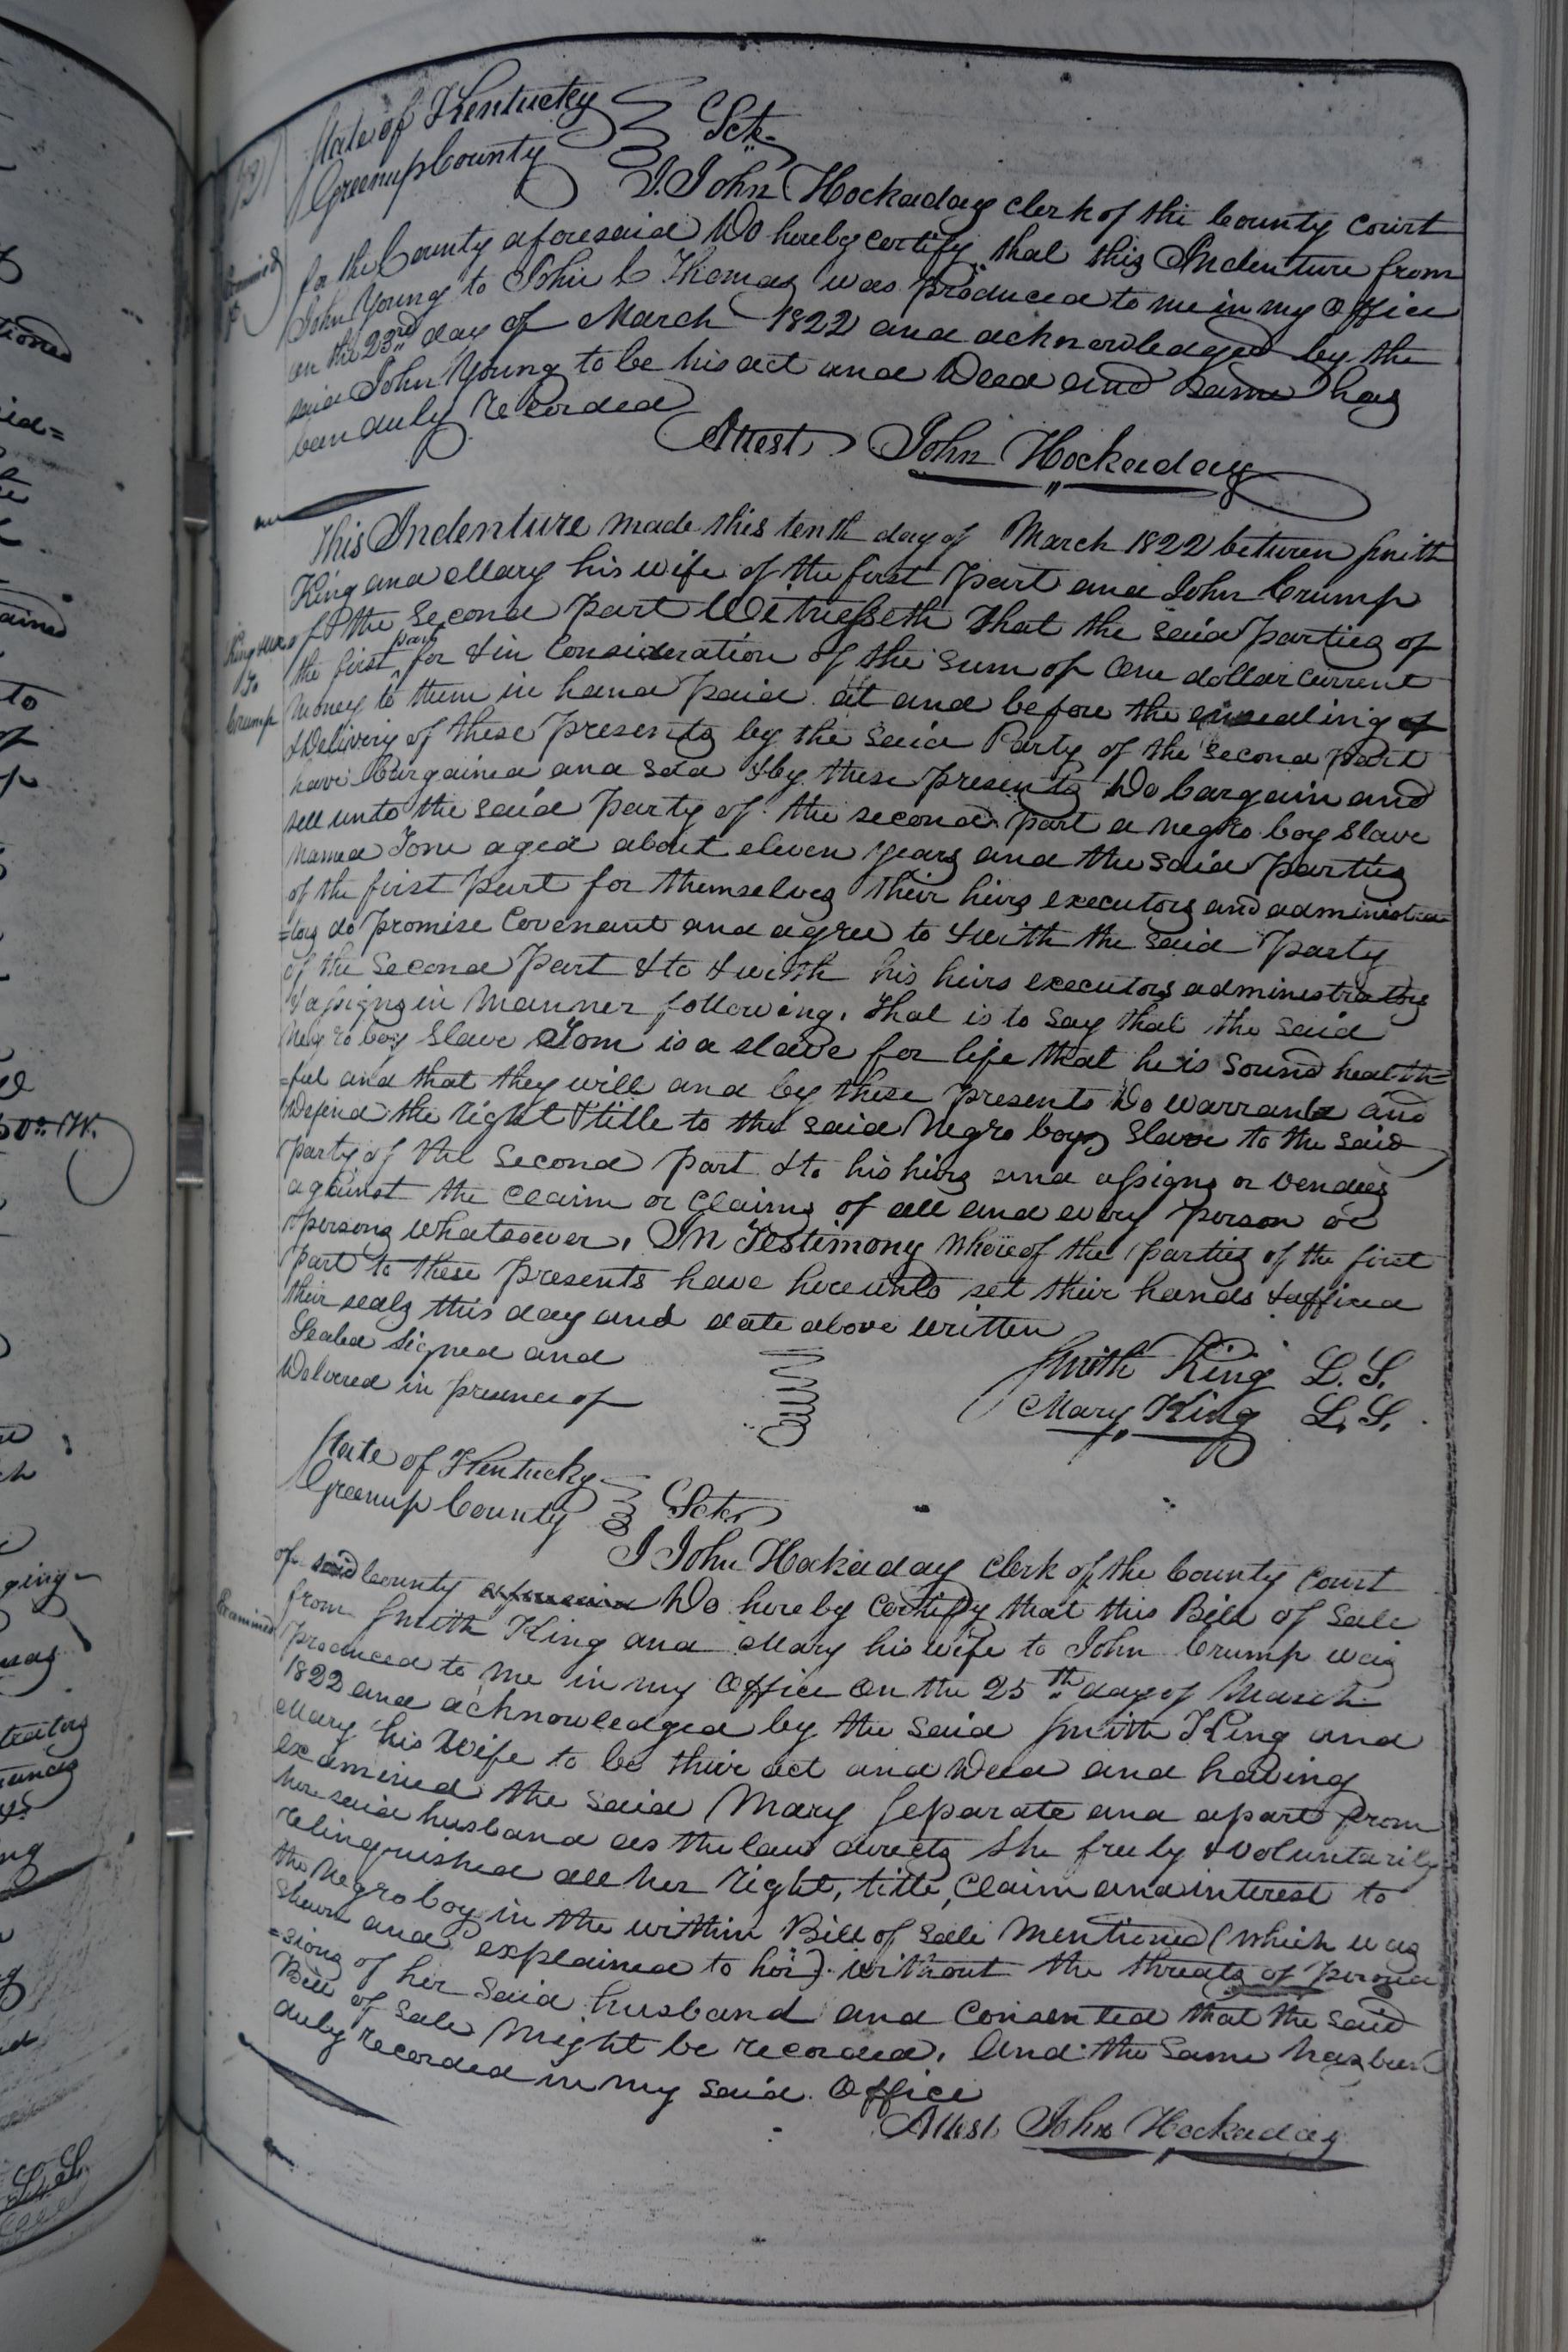 State of Kentucky
Greenup County Sct.
I. John Hockaday clerk of the County Court
for the County aforesaid Do hereby certify that this Indenture from
John Young to John C Thomas was produced to me in my office
on the 23rd day of March 1822 and acknowledged by the
said John Young to be his act and Deed and same has
ben duly recorded
Attest John Hockaday
This Indenture made this tenth day of March 1822 between Smith
King and Mary his wife of the first part and John Crump
of the second part Witnesseth that the said parties of
the first part for & in Consideration of the sum of one dollar current
money to them in hand paid at and before the ensealing of
& Delivery of these presents by the said Party of the second part
have bargained and sold & by these presents Do bargain and
sell unto the said party of the second part a negro boy slave
named Tom aged about eleven years and the said parties
of the first part for themselves their heirs executors and administra=
=tors do promise Covenant and agree to & with the said party
of the second part & to & with his heirs executors administrators
& assigns in manner following. That is to say that the said
Negro boy slave Tom is a slave for life that he is sound health=
=ful and that they will and by these presents Do warrant and
Defend the right & title to the said Negro boy slave to the said
party of the second part & to his heirs and assigns or vendees
against the claim or claims of all and every person or
persons whatsoever. In Testimony Whereof the parties of the first
part to these presents have hereunto set their hands & affixed
their seals this day and date above written
Sealed signed and
Delivered in presence of
Smith King L. S.
Mary King L. S.
State of Kentucky
Greenup County Sct.
I John Hockaday clerk of the County Court
of said County aforesaid Do hereby certify that this Bill of Sale
from Smith King and Mary his wife to John Crump was
produced to me in my office on the 25th day of March
1822 and acknowledged by the said Smith King and
Mary his wife to be their act and Deed and having
examined the said Mary separate and apart from
her said husband as the law directs she freely & voluntarily
relinquished all her right, title, claim and interest to
the Negro boy in the within Bill of Sale mentioned (which was
shewn and explained to her) without the threats of persua
=sions of her said husband and consented that the said
Bill of Sale might be recorded. And the same has been
duly recorded in my said office
Attest John Hockaday
King & ux
To
Crump
Examined